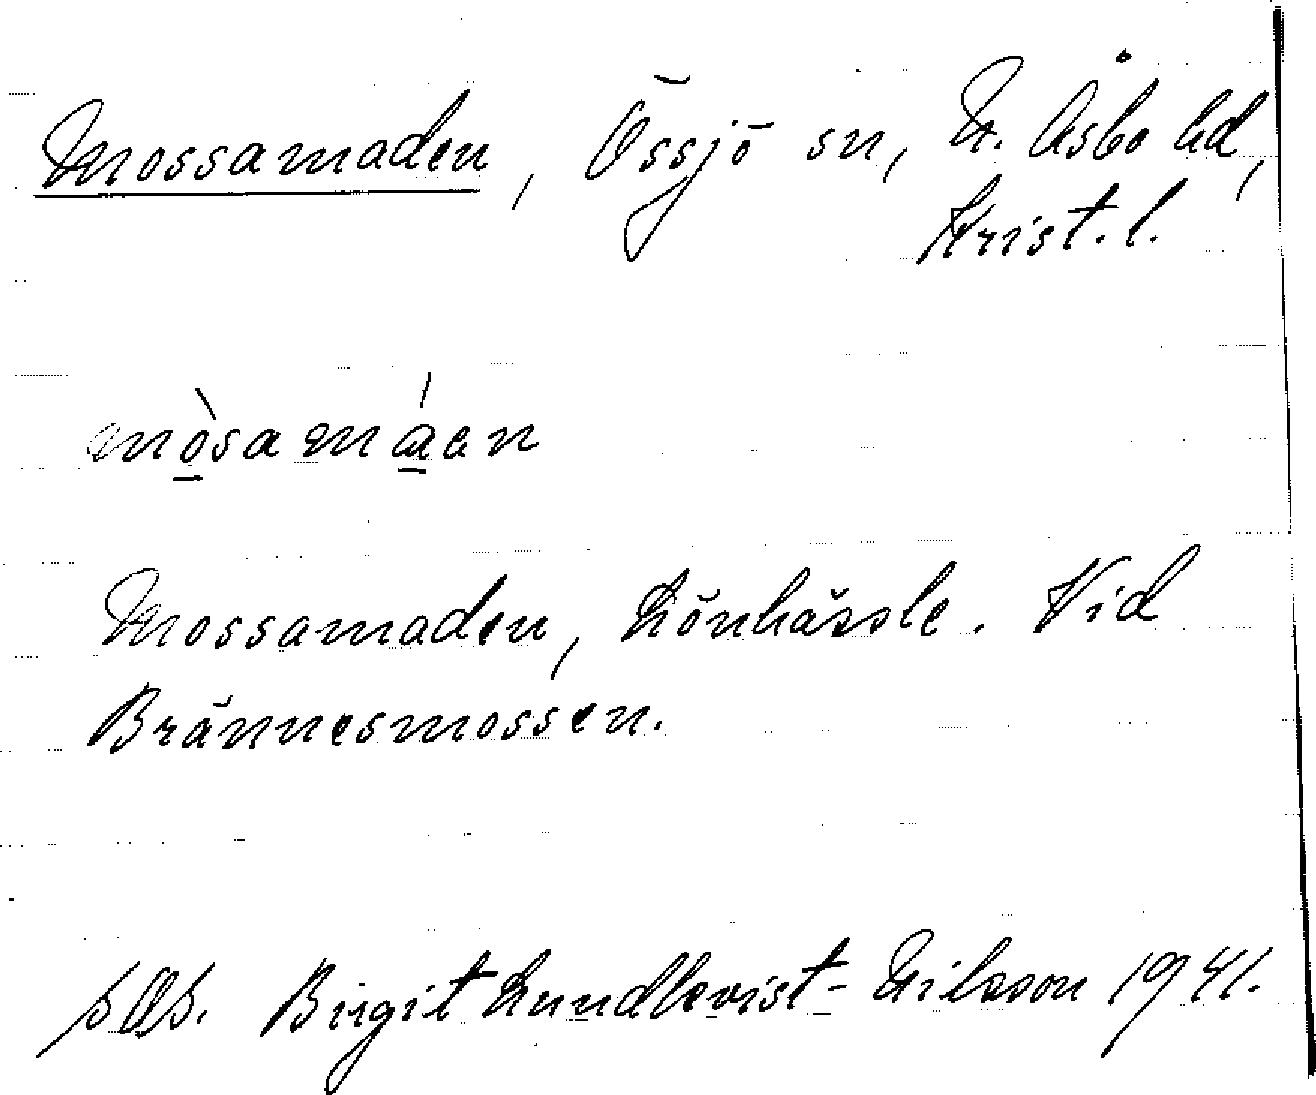 Mossamaden, Össjö sn, N. Åsbo hd,
Krist. l.
mòsamáen
Mossamaden, Lönhässle. Vid
Brännesmossen.
Birgit Lundkvist-Nilsson 1941.